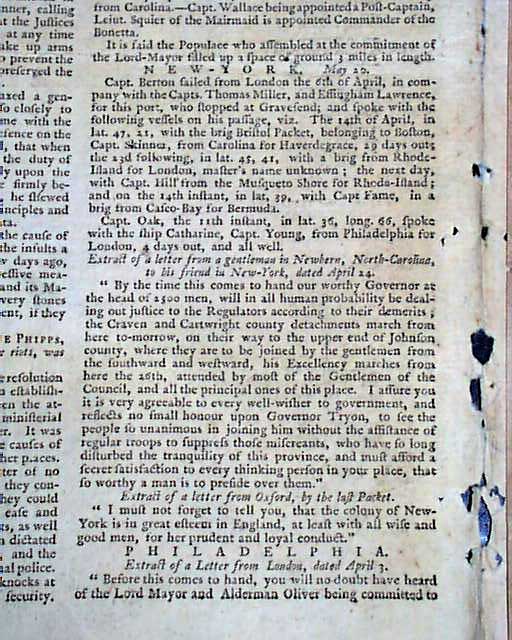 nter, calling
at the Justices
at any time
ake up arms
o prevent the
preserved the
axed a gen-
so closely to
me with the
fence on the
l, that when
the duty of
ly upon the
e firmly be-
, he shewed
inciples and
ata.
the cause of
the insults a
w days ago,
essive mea-
and its Ma-
very stones
ent, if they
E PHIPPS,
e riots, was
e resolution
n establish-
en the at-
ministerial
er. It was
e causes of
her places.
ter of no
they con-
hey could
ease and
ts, as well
n dictated
, and the
al police.
knocks at
security.
from Carolina.—Capt. Wallace being appointed a Post-Captain,
Leiut. Squier of the Mairmaid is appointed Commander of the
Bonetta.
It is said the Populace who assembled at the commitment of
the Lord-Mayor filled up a space of ground 3 miles in length.
NEW-YORK, May 20.
Capt. Berton sailed from London the 6th of April, in com-
pany with the Capts. Thomas Miller, and Effingham Lawrence,
for this port, who stopped at Gravesend; and spoke with the
following vessels on his passage, viz. The 14th of April, in
lat. 47, 21, with the brig Bristol Packet, belonging to Boston,
Capt. Skinner, from Carolina for Haverdegrace, 29 days out;
the 23d following, in lat. 45, 41, with a brig from Rhode-
Island for London, master's name unknown; the next day,
with Capt. Hill from the Musqueto Shore for Rhode-Island;
and on the 14th instant, in lat, 39, with Capt Fame, in a
brig from Casco-Bay for Bermuda.
Capt. Oak, the 11th instant, in lat. 36, long. 66, spoke
with the ship Catharine, Capt. Young, from Philadelphia for
London, 4 days out, and all well.
Extract of a letter from a gentleman in Newbern, North-Carolina,
to his friend in New-York, dated April 24.
" By the time this comes to hand our worthy Governor at
the head of 2500 men, will in all human probability be deal-
ing out justice to the Regulators according to their demerits;
the Craven and Cartwright county detachments march from
here to-morrow, on their way to the upper end of Johnson
county, where they are to be joined by the gentlemen from
the southward and westward, his Excellency marches from
here the 26th, attended by most of the Gentlemen of the
Council, and all the principal ones of this place. I assure you
it is very agreeable to every well-wisher to government, and
reflects no small honour upon Governor Tryon, to see the
people so unanimous in joining him without the assistance of
regular troops to suppress those miscreants, who have so long
disturbed the tranquility of this province, and must afford a
secret satisfaction to every thinking person in your place, that
so worthy a man is to preside over them."
Extract of a letter from Oxford, by the last Packet.
" I must not forget to tell you, that the colony of New-
York is in great esteem in England, at least with all wise and
good men, for her prudent and loyal conduct."
PHILADELPHIA.
Extract of a Letter from London, dated April 3.
" Before this comes to hand, you will no doubt have heard
of the Lord Mayor and Alderman Oliver being committed to